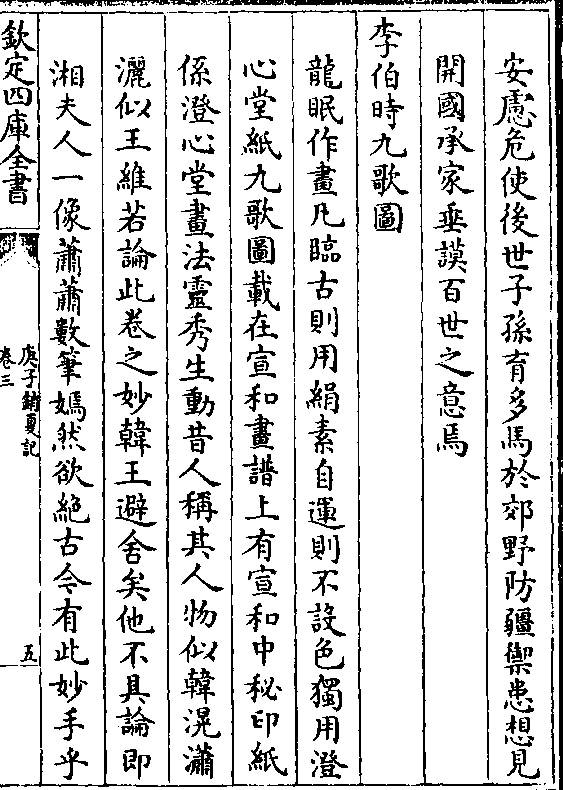 安慮危使後世子孫育多馬於郊野防疆禦患想見
開國承家垂謨百世之意焉
李伯時九歌圖
龍眠作畫凡臨古則用絹素自運則不設色獨用澄
心堂紙九歌圖載在宣和畫譜上有宣和中秘印紙
係澄心堂畫法靈秀生動昔人稱其人物似韓滉瀟
灑似王維若論此卷之妙韓王避舍矣他不具論即
湘夫人一像蕭蕭數筆嫣然欲絶古今有此妙手乎
欽定四庫全書
庚子銷夏記
卷三
五